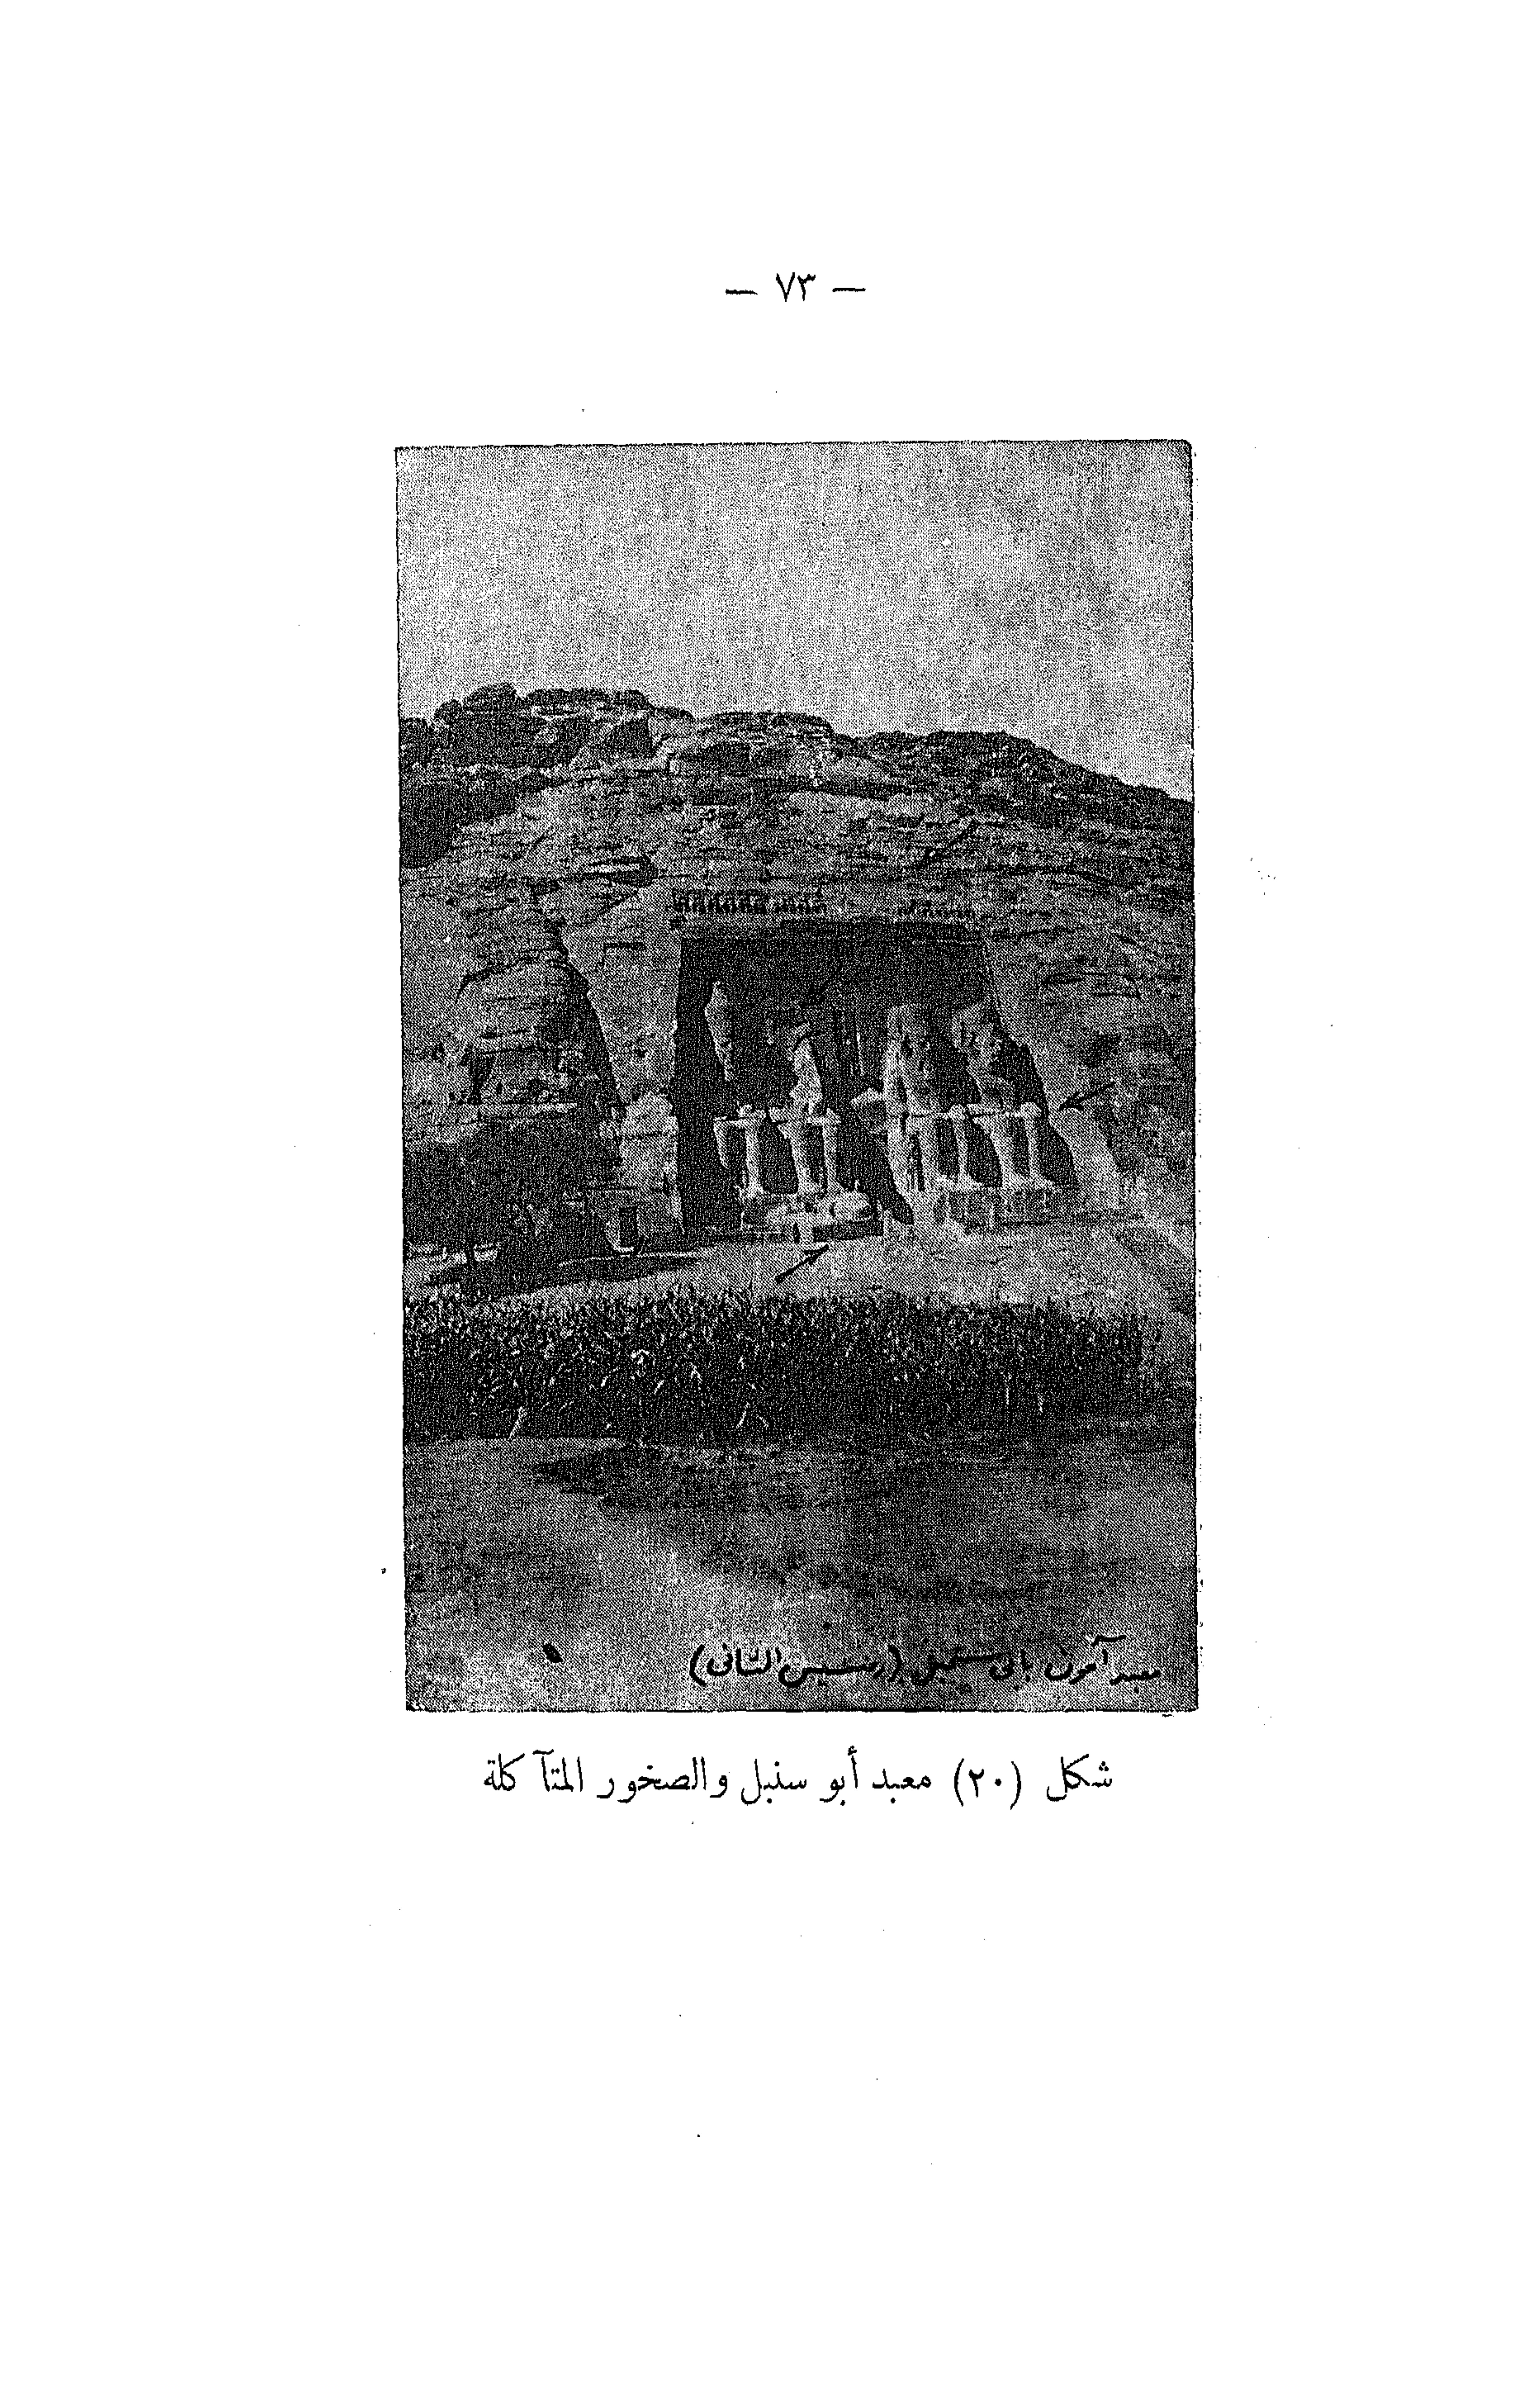 — ٧٣ —
معبد آمون بأبي سمبل (رمسيس الثاني)
شكل (٢٠) معبد أبو سنبل والصخور المتآكلة